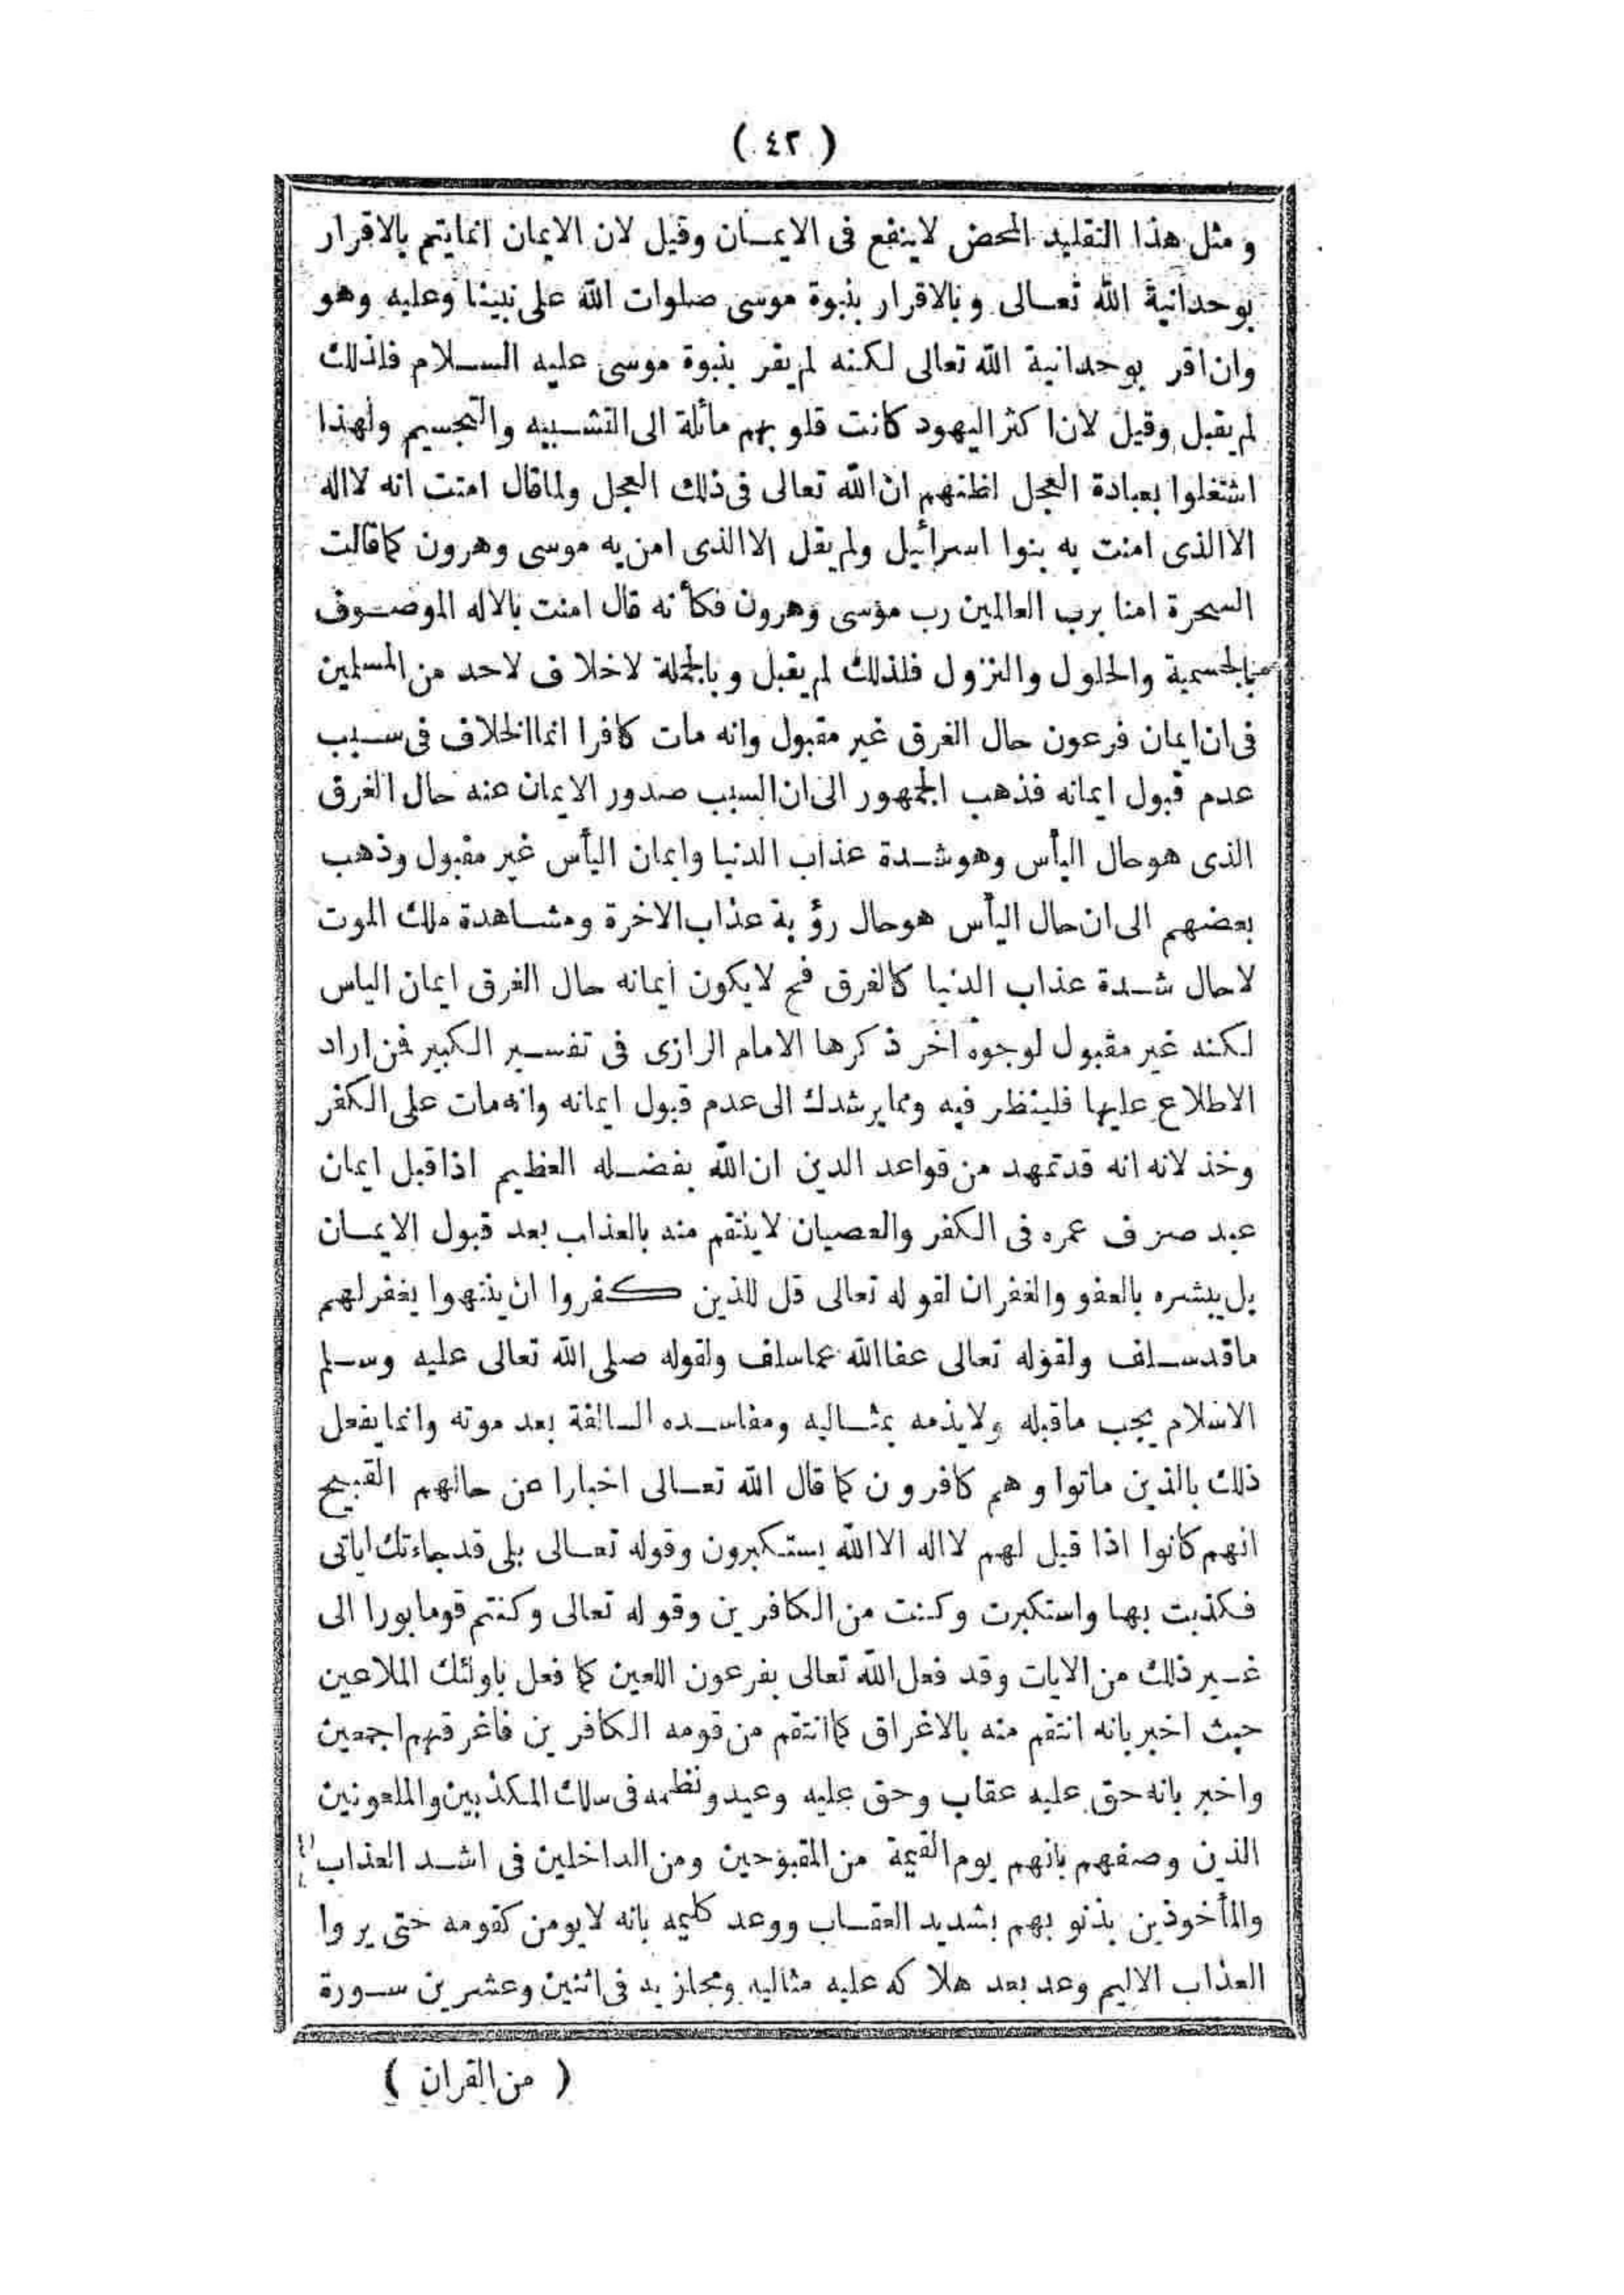 ( ٤٢ )
ومثل هذا التقليد المحض لاينفع فى الايمان وقيل لان الايمان انمايتم بالاقرار
بوحدانية الله تعالى وبالاقرار بنبوة موسى صلوات الله على نبينا وعليه وهو
وان اقر بوحدانية الله تعالى لكنه لم يقر بنبوة موسى عليه السلام فلذلك
لم يقبل وقيل لان اكثر اليهود كانت قلوبهم مائلة الى التشبيه والتجسيم ولهذا
اشتغلوا بعبادة العجل لظنهم ان الله تعالى فى ذلك العجل ولماقال امنت انه لااله
الاالذى امنت به بنوا اسرائيل ولم يقل الاالذى امن به موسى وهرون كماقالت
السحرة امنا برب العالمين رب موسى وهرون فكأنه قال امنت بالاله الموصوف
بالجسمية والحلول والنزول فلذلك لم يقبل وبالجملة لاخلاف لاحد من المسلمين
فى ان ايمان فرعون حال الغرق غير مقبول وانه مات كافرا انماالخلاف فى سبب
عدم قبول ايمانه فذهب الجمهور الى ان السبب صدور الايمان عنه حال الغرق
الذى هوحال اليأس وهوشدة عذاب الدنيا وايمان اليأس غير مقبول وذهب
بعضهم الى ان حال اليأس هوحال رؤية عذاب الاخرة ومشاهدة ملك الموت
لاحال شدة عذاب الدنيا كالغرق فح لايكون ايمانه حال الغرق ايمان الياس
لكنه غير مقبول لوجوه اخر ذكرها الامام الرازى فى تفسير الكبير فمن اراد
الاطلاع عليها فلينظر فيه ومما يرشدك الى عدم قبول ايمانه وانه مات على الكفر
وخذلانه انه قدتمهد من قواعد الدين ان الله بفضله العظيم اذاقبل ايمان
عبد صرف عمره فى الكفر والعصيان لاينتقم منه بالعذاب بعد قبول الايمان
بل يبشره بالعفو والغفران لقوله تعالى قل للذين كفروا ان ينتهوا يغفرلهم
ماقدسلف ولقوله تعالى عفاالله عماسلف ولقوله صلى الله تعالى عليه وسلم
الاسلام يجب ماقبله ولايذمه بمثاليه ومفاسده السالفة بعد موته وانمايفعل
ذلك بالذين ماتوا وهم كافرون كما قال الله تعالى اخبارا عن حالهم القبيح
انهم كانوا اذا قيل لهم لااله الاالله يستكبرون وقوله تعالى بلى قدجاءتك اياتى
فكذبت بها واستكبرت وكنت من الكافرين وقوله تعالى وكنتم قوما بورا الى
غير ذلك من الايات وقد فعل الله تعالى بفرعون اللعين كما فعل باولئك الملاعين
حيث اخبربانه انتقم منه بالاغراق كماانتقم من قومه الكافرين فاغرقهم اجمعين
واخبر بانه حق عليه عقاب وحق عليه وعيد ونظمه فى سلك المكذبين والملعونين
الذين وصفهم بانهم يوم القيمة من المقبوحين ومن الداخلين فى اشد العذاب
والمأخوذين بذنوبهم بشديد العقاب ووعد كليمه بانه لايومن كقومه حتى يروا
العذاب الاليم وعد بعد هلاكه عليه مثاليه ومجازيه فى اثنين وعشرين سورة
( من القران )